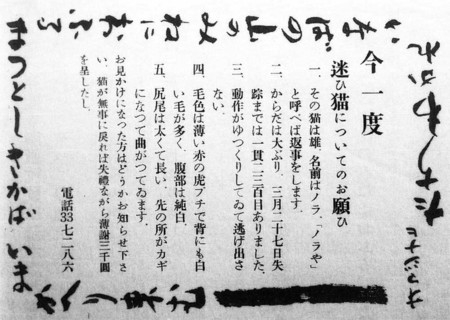 オマジナヒ
たちわかれ
いなばの山のみねにおふる
まつとしきかばいま
かへり来む
今一度
迷ひ猫についてのお願ひ
一、その猫は雄、名前はノラ、「ノラや」
と呼べば返事をします。
二、からだは大ぶり、三月二十七日失
踪までは一貫二三百目ありました。
三、動作がゆつくりしてゐて逃げ出さ
ない。
四、毛色は薄い赤の虎ブチで背にも白
い毛が多く、腹部は純白。
五、尻尾は太くて長い。先の所がカギ
になつて曲がつてゐます。
お見かけになつた方はどうかお知らせ下さ
い。猫が無事に戻れば失禮ながら薄謝三千圓
を呈したし。
電話33七二八六